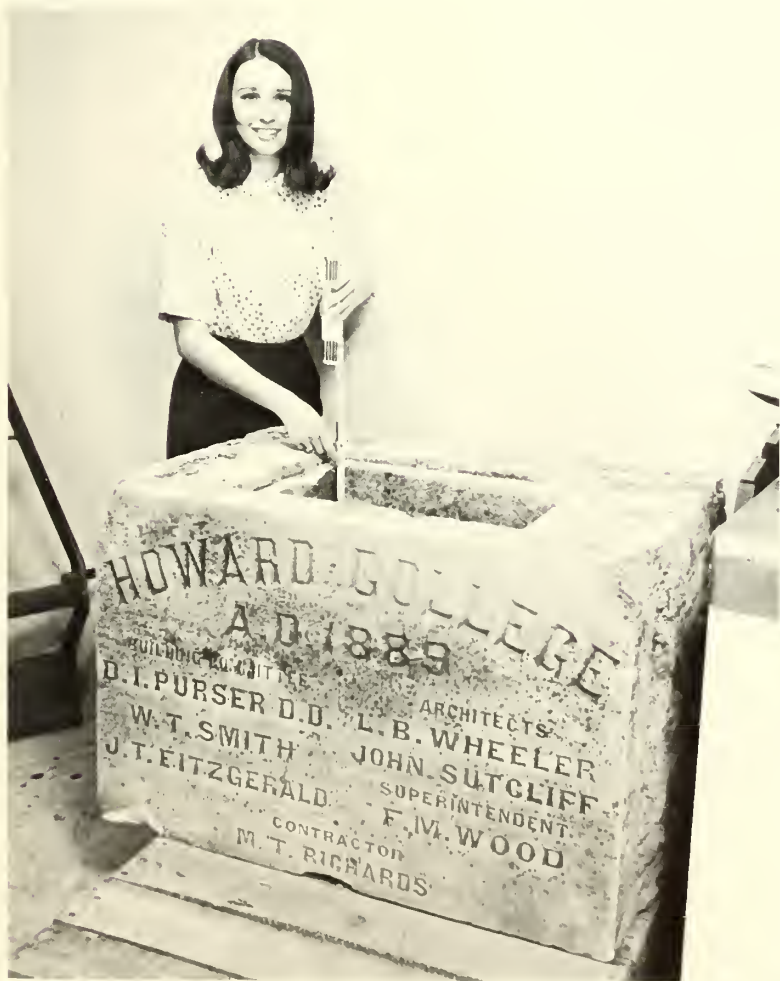 HOWARD COLLEGE
A.D. 1889
BUILDING COMMITTEE
D. I. PURSER D.D.
W. T. SMITH
J. T. FITZGERALD
ARCHITECTS
L. B. WHEELER
JOHN SUTCLIFF
SUPERINTENDENT
F. M. WOOD
CONTRACTOR
M. T. RICHARDS